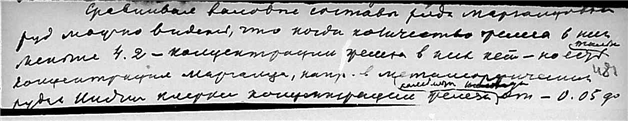 Сравнивая валовые составы ряда марганцовых
руд можно видеть, что когда количество железа в них
меньше 4.2 – концентрации железа в них нет – но есть только
концентрация марганца, напр. в метаморфических
рудах Индии имеем концентрации железа от – 0.05 до